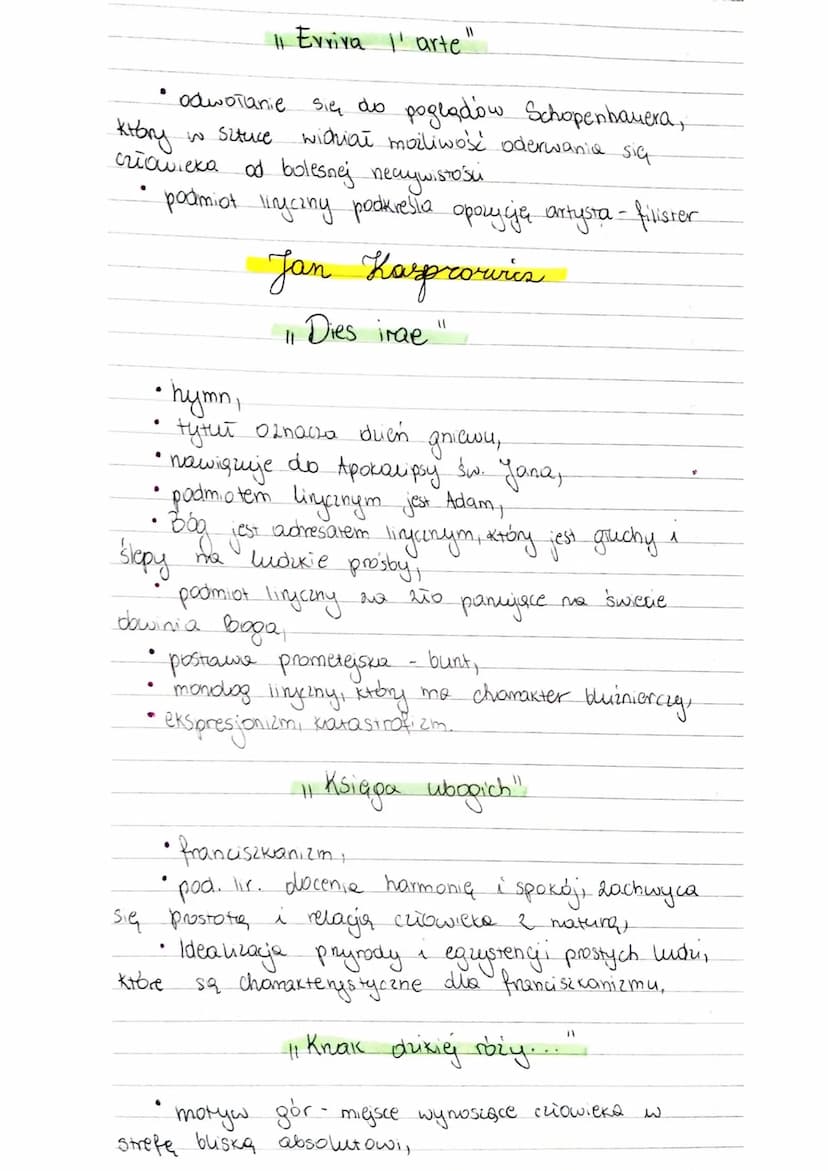 „Evviva l'arte"
• odwołanie się do poglądów Schopenhauera,
który w sztuce widział możliwość oderwania się
człowieka od bolesnej rzeczywistości
• podmiot liryczny podkreśla opozycję artysta - filister
Jan Kasprowicz
„Dies irae"
• hymn,
• tytuł oznacza dzień gniewu,
• nawiązuje do Apokalipsy św. Jana,
• podmiotem lirycznym jest Adam,
• Bóg jest adresatem lirycznym, który jest głuchy i
ślepy na ludzkie prośby,
• podmiot liryczny za zło panujące na świecie
obwinia Boga,
• postawa prometejska - bunt,
• monolog liryczny, który ma charakter bluźnierczy,
• ekspresjonizm, katastrofizm.
„Księga ubogich"
• franciszkanizm,
• pod. lir. docenia harmonię i spokój, zachwyca
się prostotą i relacją człowieka z naturą,
• Idealizacja przyrody i egzystencji prostych ludzi,
które są charakterystyczne dla franciszkanizmu,
„Krzak dzikiej róży..."
• motyw gór - miejsce wynoszące człowieka w
strefę bliską absolutowi,